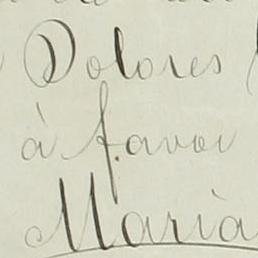 Dolores
á favor
Maria